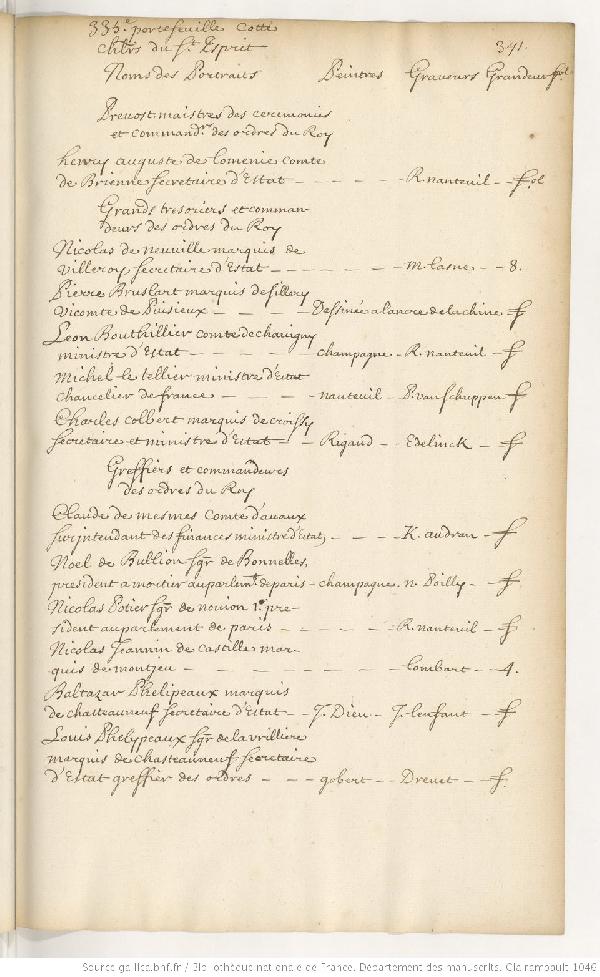 335.e portefeuille Cotté
Ch.ers du S.t Esprit
341.
Noms des Portraits Peintres Graveurs Grandeur fol
Prevost maistres des ceremonies
et command.rs des ordres du Roy
henry auguste de lomenie comte
de Brienne secretaire d'Estat - - - - - R. nanteuil - fol
Grands tresoriers et comman-
deurs des ordres du Roy
Nicolas de neuville marquis de
Villeroy secretaire d'Estat - - - - - - M. lasne - - 8.
Pierre Bruslart marquis de sillery
Vicomte de Puisieux - - - - Dessinée a lancre de la chine f
Leon Bouthillier comte de chavigny
ministre d'Estat - - - - - champagne - R. nanteuil - f
Michel le tellier ministre d'Estat
chancelier de france - - - - nanteuil - P. van schuppen - f
Charles colbert marquis de croissy
secretaire et ministre d'Estat - - Rigaud - Edelinck - f
Greffiers et commandeures
des ordres du Roy
Claude de mesmes comte d'avaux
surjntendant des finances ministre d'Estat - - - K. audran - f
Noel de Bullion sgr de Bonnelles,
president a mortier au parlem.t de paris - champagne - n. Poilly - f
Nicolas Potier sgr de novion 1.er pre-
sident au parlement de paris - - - - - R. nanteuil - f
Nicolas Jeannin de castille mar-
quis de montjeu - - - - - - - lombart - 4.
Baltazar Phelipeaux marquis
de chasteauneuf secretaire d'Estat - - J. Dieu - J. lenfant - f
Louis Phelypeaux sgr de la vrilliere
marquis de Chasteauneuf secretaire
d'Estat greffier des ordres - - - gobert - Drevet - f
Source gallica.bnf.fr / Bibliothèque nationale de France. Département des manuscrits. Clairambault 1046